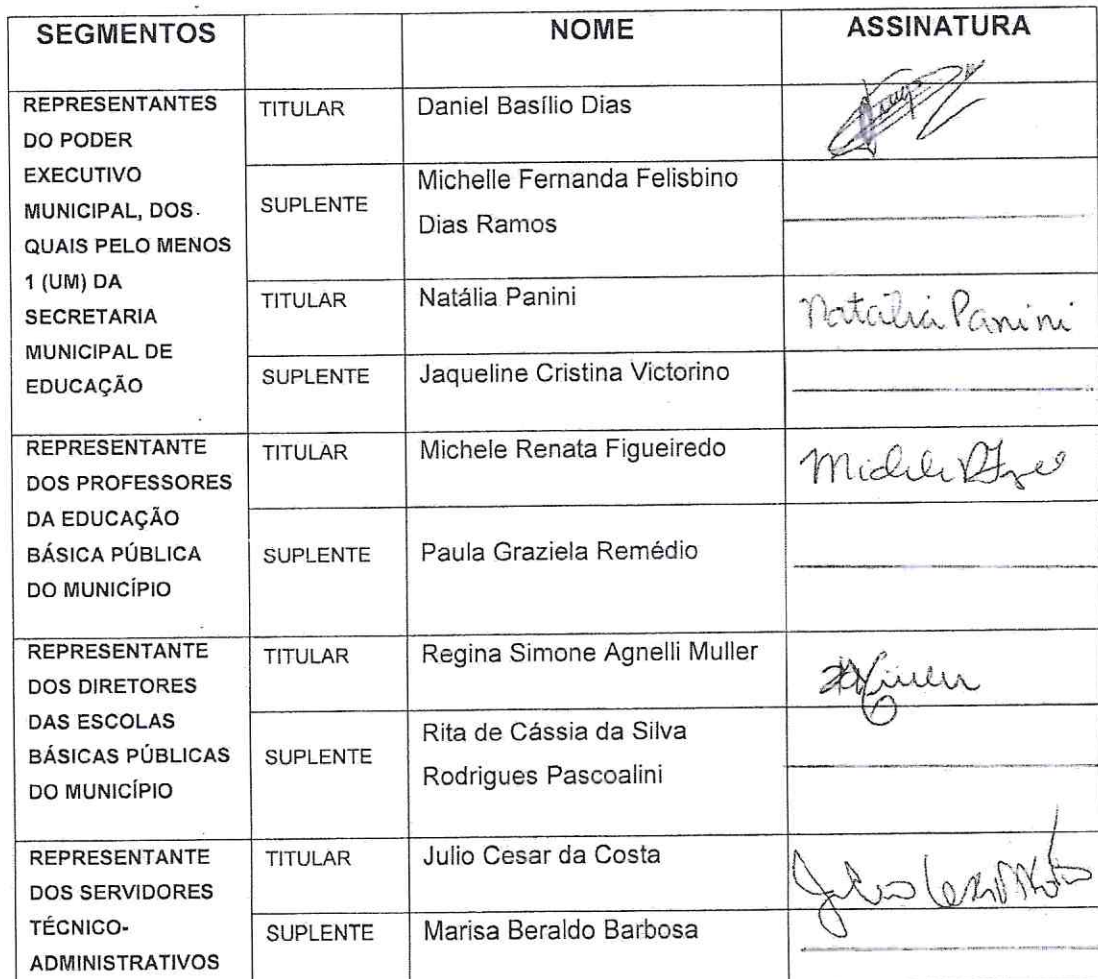 SEGMENTOS NOME ASSINATURA
REPRESENTANTES
DO PODER
EXECUTIVO
MUNICIPAL, DOS
QUAIS PELO MENOS
1 (UM) DA
SECRETARIA
MUNICIPAL DE
EDUCAÇÃO
TITULAR Daniel Basílio Dias
SUPLENTE Michelle Fernanda Felisbino
Dias Ramos
TITULAR Natália Panini Natalia Panini
SUPLENTE Jaqueline Cristina Victorino
REPRESENTANTE
DOS PROFESSORES
DA EDUCAÇÃO
BÁSICA PÚBLICA
DO MUNICÍPIO
TITULAR Michele Renata Figueiredo Michele
SUPLENTE Paula Graziela Remédio
REPRESENTANTE
DOS DIRETORES
DAS ESCOLAS
BÁSICAS PÚBLICAS
DO MUNICÍPIO
TITULAR Regina Simone Agnelli Muller
SUPLENTE Rita de Cássia da Silva
Rodrigues Pascoalini
REPRESENTANTE
DOS SERVIDORES
TÉCNICO-
ADMINISTRATIVOS
TITULAR Julio Cesar da Costa
SUPLENTE Marisa Beraldo Barbosa